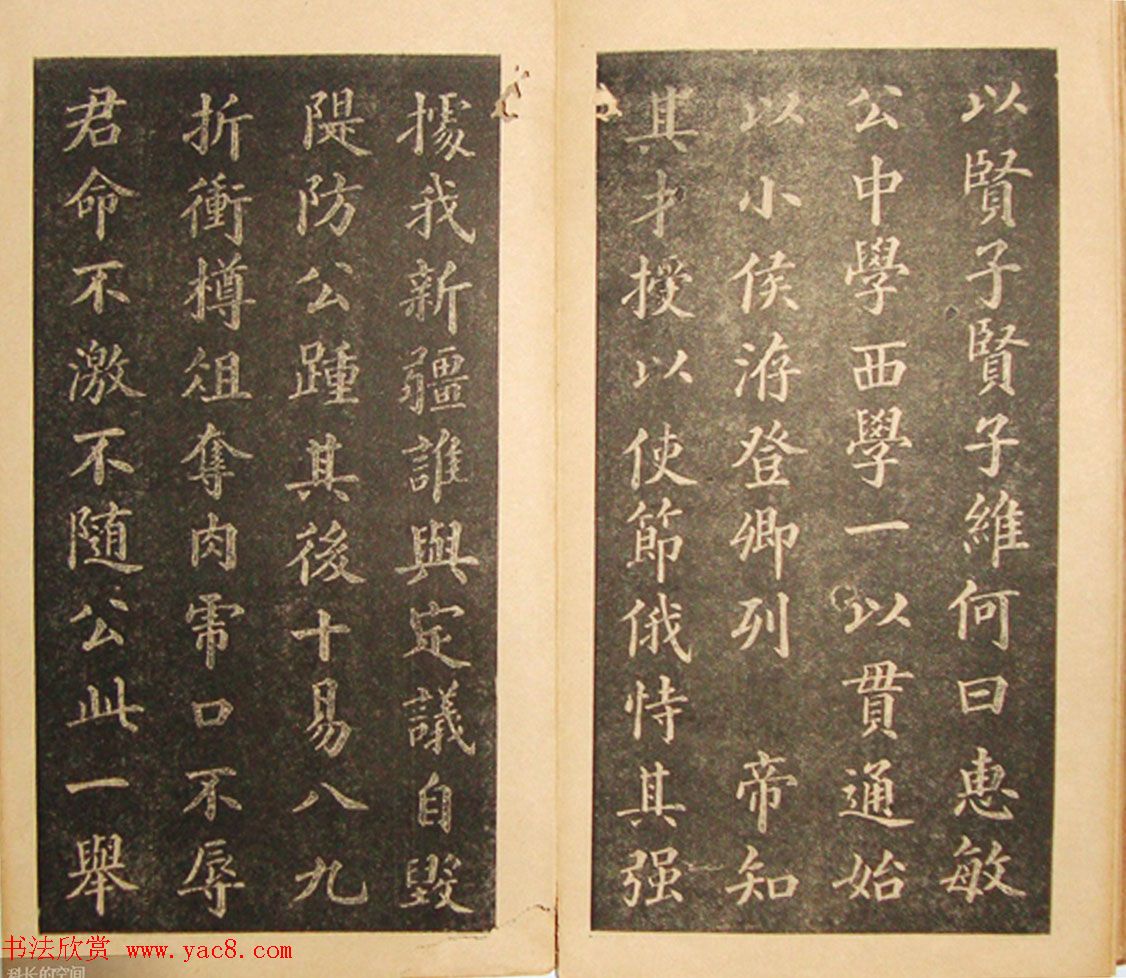 以賢子賢子維何曰惠敏
公中學西學一以貫通始
以小侯游登卿列 帝知
其才授以使節俄恃其强
據我新疆誰與定議自毀
隄防公踵其後十易八九
折衝樽俎奪肉虎口不辱
君命不激不随公此一舉
书法欣赏 www.yac8.com
科长的空间